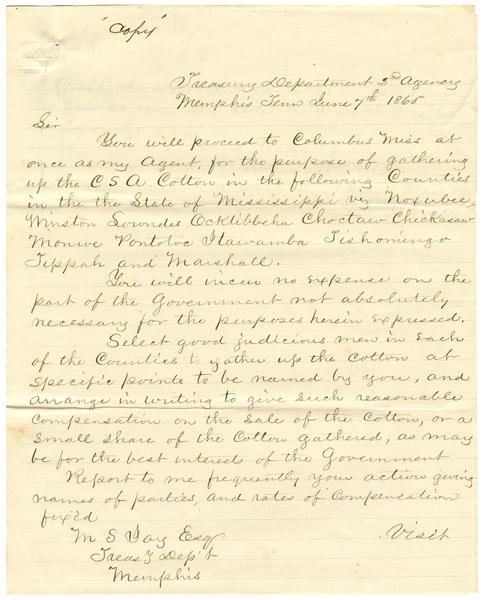 "Copy"
Treasury Department 2nd Agency
Memphis Tenn June 7th 1865
Sir
You will proceed to Columbus Miss at
once as my Agent, for the purpose of gathering
up the C S A Cotton in the following Counties
in the the State of Mississippi viz Noxubee
Winston Lowndes Ocktibbeha Choctaw Chickasaw
Monroe Pontotoc Itawamba Tishomingo
Tippah and Marshall.
You will incur no expense on the
part of the Government not absolutely
necessary for the purposes herein expressed.
Select good judicious men in each
of the Counties to gather up the cotton at
specific points to be named by you, and
arrange in writing to give such reasonable
compensation on the sale of the Cotton, or a
small share of the Cotton gathered, as may
be for the best interests of the Government
Report to me frequently your action giving
names of parties, and rates of compensation
fixed
M S Esq Visit
Treasy Dep't
Memphis